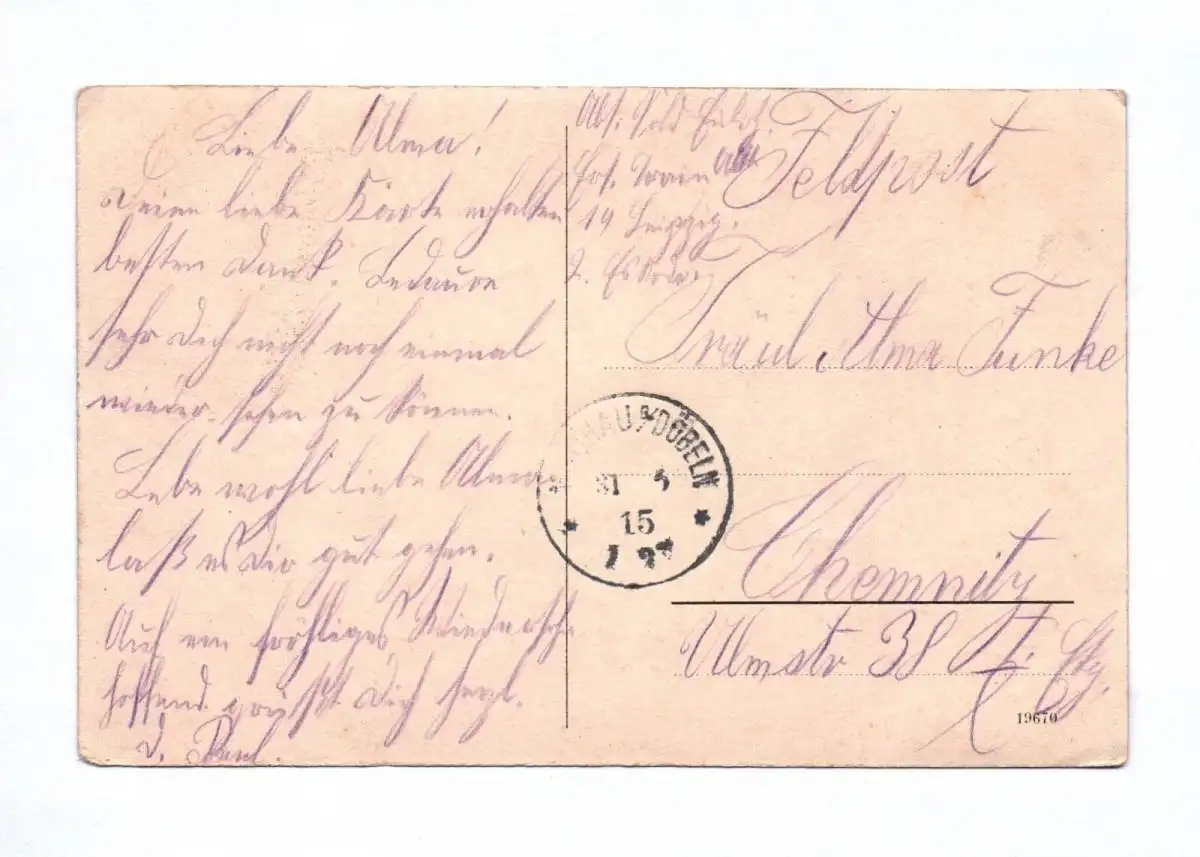 Liebe Alma!
Deine liebe Karte erhalten
besten Dank. Bedaure
sehr Dich nicht noch einmal
wieder sehen zu können.
Lebe wohl liebe Alma
laß es Dir gut gehen.
Auf ein fröhliges Wiedersehn
hoffend grüßt Dich herzl.
D. Paul.
Abs. Sold.
Train
19 Leipzig.
2. Eskadr.
Feldpost
Fräul. Alma Funke
Chemnitz
Ulmstr 38 II.
NAU B/DÖBELN
31 5
15
19670